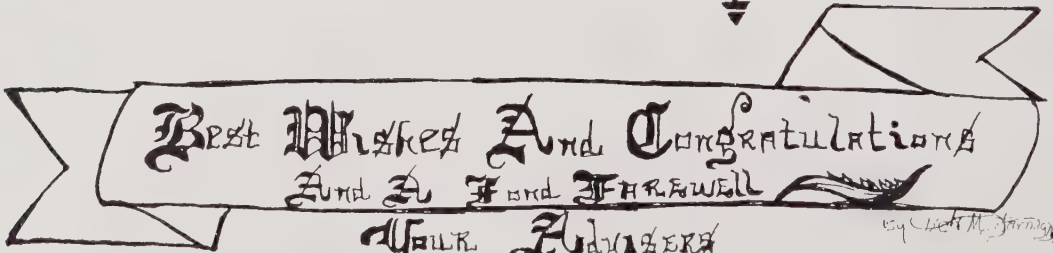 Best Wishes And Congratulations
And A Fond Farewell
Your Advisers
By M.